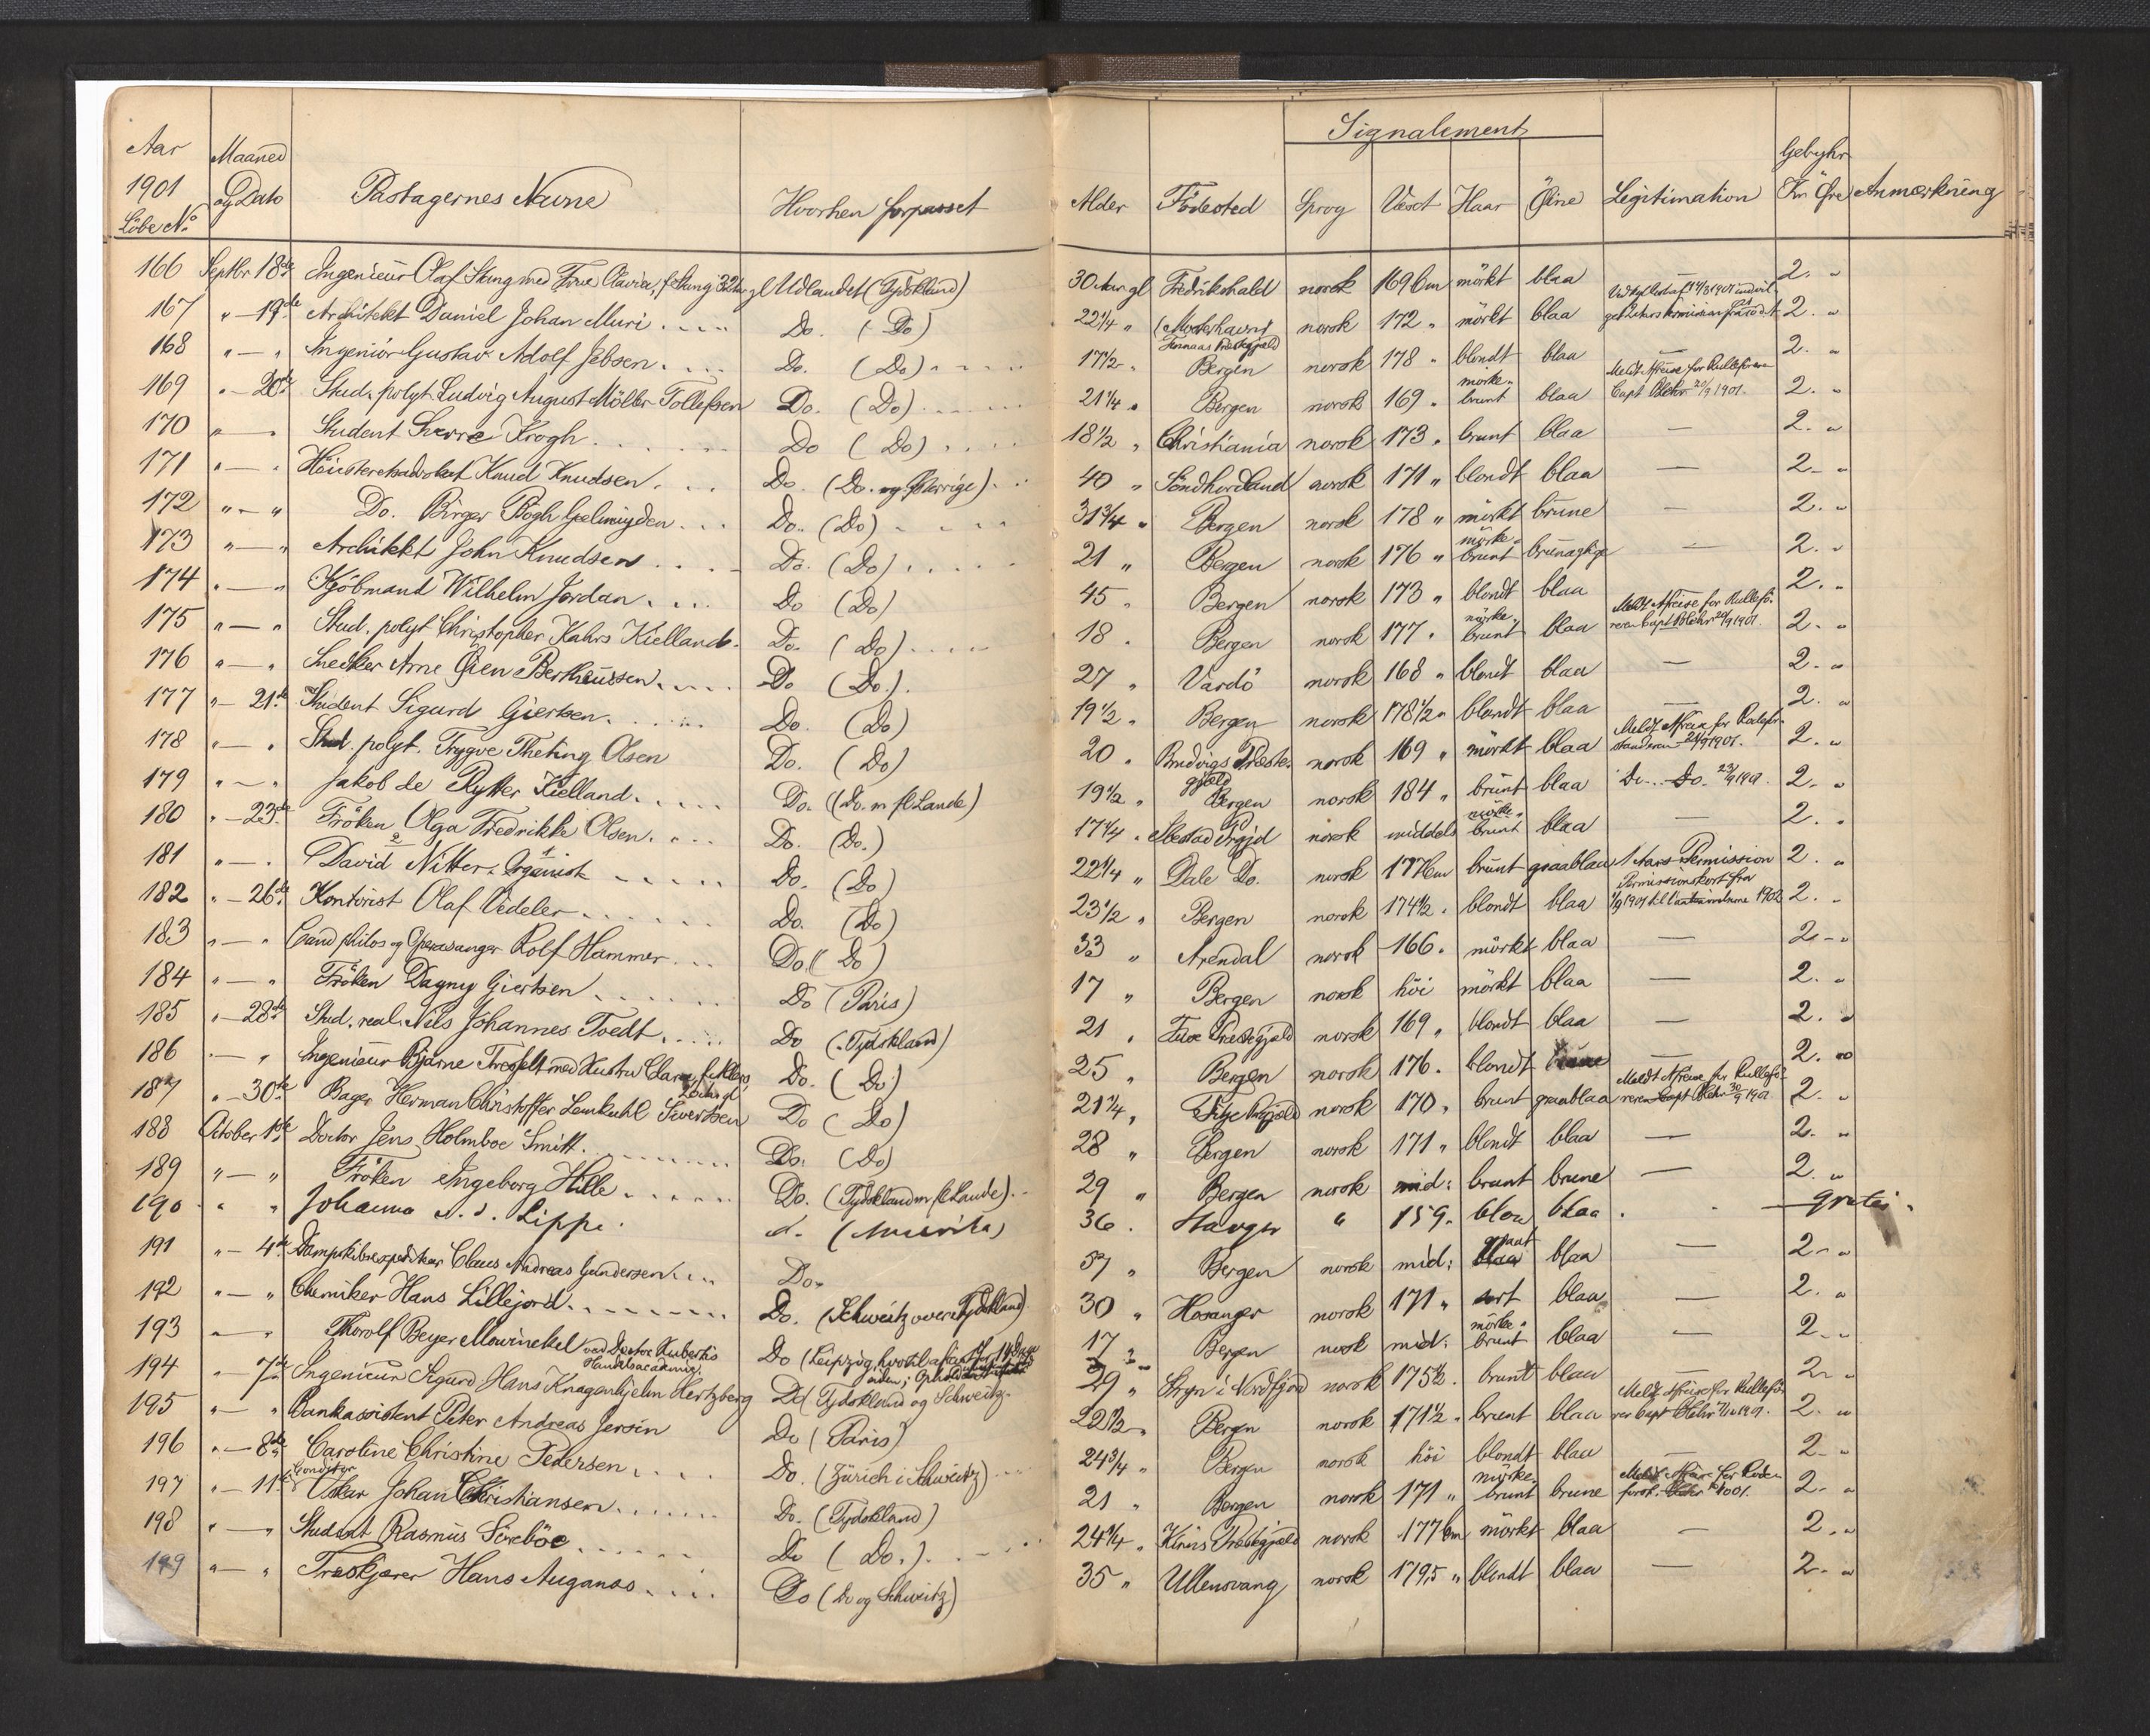 Signalement
Aar 1901 Löbe No Maaned og Dato Passagernes Navne Hvorhen forpasset Alder Födested Sprog Væxt Haar Öine Legitimation Gebyhr Kr Øre Anmærkning
166 Septbr 18de Ingenieur Olaf Stang med Frue Olavia, f. Stang 32 Aar gl Udlandet (Tydskland) 30 Aar gl Fredrikshald norsk 169 Cm mörkt blaa 2. "
167 " - 19de Architekt Daniel Johan Muri Do. (Do) 22 1/4 " norsk 172 " mörkt blaa 2. "
168 " - " Ingeniör Gustav Adolf Jebsen Do. (Do) 17 1/2 " Bergen norsk 178 " blondt blaa — 2. "
169 " - 20de Stud. polyt. Ludvig August Möller Tollefsen Do. (Do) 21 1/4 " Bergen norsk 169 " mörke- brunt blaa Meldt Afreise for Rulleförer Capt Blehr 20/9 1901. 2. "
170 " - " Student Sverre Krogh Do (Do) 18 1/2 " Christiania norsk 173 " brunt blaa — 2. "
171 " - " Höiesteretsadvokat Knud Knudsen Do. (Do. og Sverrige) 40 " Söndhordland norsk 171 " blondt blaa — 2 - "
172 " - " Do. Birger Bögh Geelmuyden Do. (Do) 31 3/4 " Bergen norsk 178 " mörkt brune — 2. "
173 " - " Architekt John Knudsen Do. (Do) 21 " Bergen norsk 176 " mörke- brunt brunagtige — 2. "
174 " - " Kjöbmand Wilhelm Jordan Do (Do) 45 " Bergen norsk 173 " blondt blaa 2. "
175 " - " Stud. polyt Christopher Kahrs Kielland Do. (Do) 18 " Bergen norsk 177 " mörke- brunt blaa Meldt Afreise for Rulleföreren Capt Blehr 20/9 1901. 2. "
176 " - " Snedker Arne Öien Bertheussen Do (Do.) 27 " Vardö norsk 168 " blondt blaa — 2. "
177 " - 21de Student Sigurd Giertsen Do. (Do) 19 1/2 " Bergen norsk 178 1/2 " blondt blaa — 2. "
178 " - " Stud. polyt. Trygve Theting Olsen Do. (Do) 20 " Bredvigs Præstegjæld norsk 169 " mörkt blaa Meldt Afreise for 21/9 1901. 2. "
179 " - " Jakob de Rytter Kielland Do. (Do. m fl Lande) 19 1/2 " Bergen norsk 184 " brunt blaa Do. Do. 23/9 1901. 2. "
180 " - 23de Fröken Olga Fredrikke Olsen Do. (Do.) 17 1/4 " Prgjd norsk middels mörke- brunt blaa — 2. "
181 " - " David Nitter, Organist Do. (Do) 22 1/4 " Dale Do. norsk 177 Cm brunt graablaa 1 Aars Permission 2. "
182 " - 26de Kontorist Olaf Vedeler Do. (Do) 23 1/2 " Bergen norsk 174 1/2 " blondt blaa Permissionskort fra 1901 til 1902 2. "
183 " - " Cand philos og Operasanger Rolf Hammer Do. (Do) 33 " Arendal norsk 166 " mörkt blaa — 2 - "
184 " - " Fröken Dagny Giertsen Do (Paris) 17 " Bergen norsk höi mörkt blaa — 2. "
185 " - 28de Stud. real. Nils Johannes Tvedt Do (Tydskland) 21 " Præstegjæld norsk 169 " blondt blaa — 2. "
186 " - " Ingenieur Bjarne med Hustru Clara, Do. (Do) 25 " Bergen norsk 176. blondt — 2. "
187 " - 30de Bager Herman Christoffer Lemkuhl Sivertsen Do (Do) 21 1/4 " Fitje Prgjæld norsk 170 " brunt graablaa Meldt Afreise for Rulleföreren Capt Blehr 30/9 1901 2. "
188 October 1ste Doctor Jens Holmboe Smitt Do. (Do) 28 " Bergen norsk 171 " blondt blaa — 2. "
189 " - " Fröken Ingeborg Hille Do. (Tydskland m fl Lande) 29 " Bergen norsk mid: brunt brune — 2. "
190 " " Johanna Lippe d. (Amerika) 36 " " 159 " blaa gratis.
191 " - 4de Dampskibsexpeditör Claus Andreas Gundersen Do. 57 " Bergen norsk mid: graat blaa — 2 - "
192 " - " Chemiker Hans Lillejord Do. (Schweitz over Tydskland) 30 " Hosanger norsk 171 " sort blaa — 2. "
193 " - " Thorolf Beyer Mowinckel ved Doctor Huberts Handelsacademie Do (Leipzig, 17 " Bergen norsk mid: mörke- brunt blaa — 2 - "
194 " - 7de Ingenieur Sigurd Hans Knagenhjelm Hertzberg Do (Tydskland og Schweitz. 29 " Stryn i Nordfjord norsk 175 1/2 " brunt blaa 2 - "
195 " - " Bankassistent Peter Andreas Jersin Do (Paris) 22 1/2 " Bergen norsk 171 1/2 " brunt blaa Meldt Afreise for Rulleförer Capt Blehr 7/10 1901. 2. "
196 " - 8de Caroline Christine Pedersen Do. (Zürich i Schweitz) 24 3/4 " Bergen norsk höi blondt blaa — 2 - "
197 " - 11te Conditor Oskar Johan Christiansen Do. (Tydskland) 21 " Bergen norsk 171 " mörke- brunt brune Meldt Afreise for 2 - "
198 " - " Student Rasmus Sörböe Do (Do.) 24 1/4 " Præstegjæld norsk 177 Cm mörkt blaa — 2. "
199 " - " Træskjærer Hans Auganæs Do (Do og Schweitz) 35 " Ullensvang norsk 179,5 " blondt blaa — 2 - "